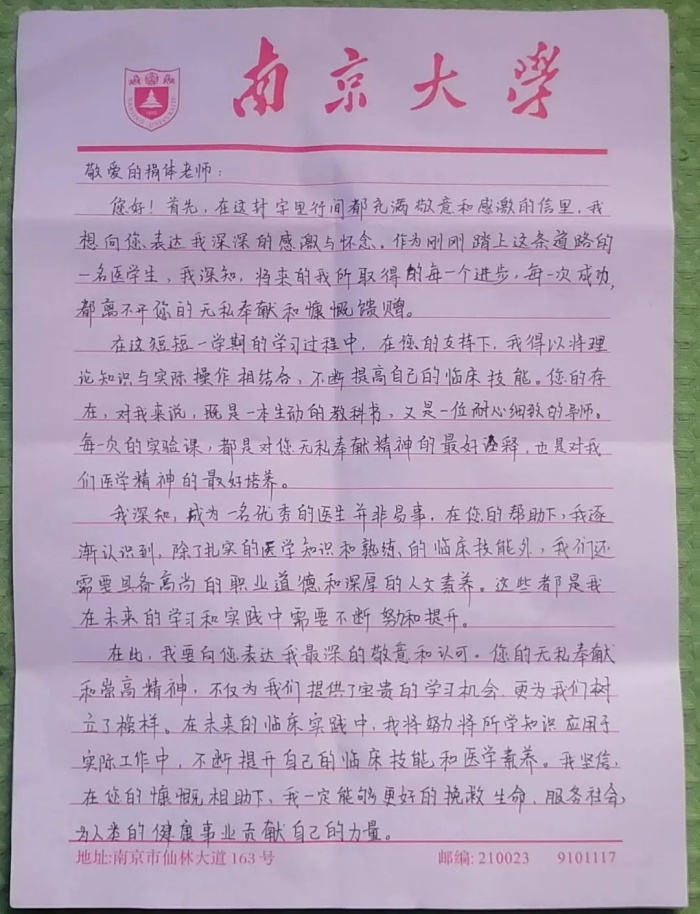 南京大學
敬爱的捐体老师：
您好！首先，在这封字里行间都充满敬意和感激的信里，我
想向您表达我深深的感激与怀念。作为刚刚踏上这条道路的
一名医学生，我深知，将来的我所取得的每一个进步，每一次成功，
都离不开您的无私奉献和慷慨馈赠。
在这短短一学期的学习过程中，在您的支持下，我得以将理
论知识与实际操作相结合，不断提高自己的临床技能。您的存
在，对我来说，既是一本生动的教科书，又是一位耐心细致的导师。
每一次的实验课，都是对您无私奉献精神的最好诠释，也是对我
们医学精神的最好培养。
我深知，成为一名优秀的医生并非易事，在您的帮助下，我逐
渐认识到，除了扎实的医学知识和熟练的临床技能外，我们还
需要具备高尚的职业道德和深厚的人文素养。这些都是我
在未来的学习和实践中需要不断努和提升。
在此，我要向您表达我最深的敬意和认可。您的无私奉献
和崇高精神，不仅为我们提供了宝贵的学习机会，更为我们树
立了榜样。在未来的临床实践中，我将努力将所学知识应用于
实际工作中，不断提升自己的临床技能和医学素养。我坚信，
在您的慷慨相助下，我一定能够更好的挽救生命，服务社会，
为人类的健康事业贡献自己的力量。
地址:南京市仙林大道163号 邮编: 210023 9101117